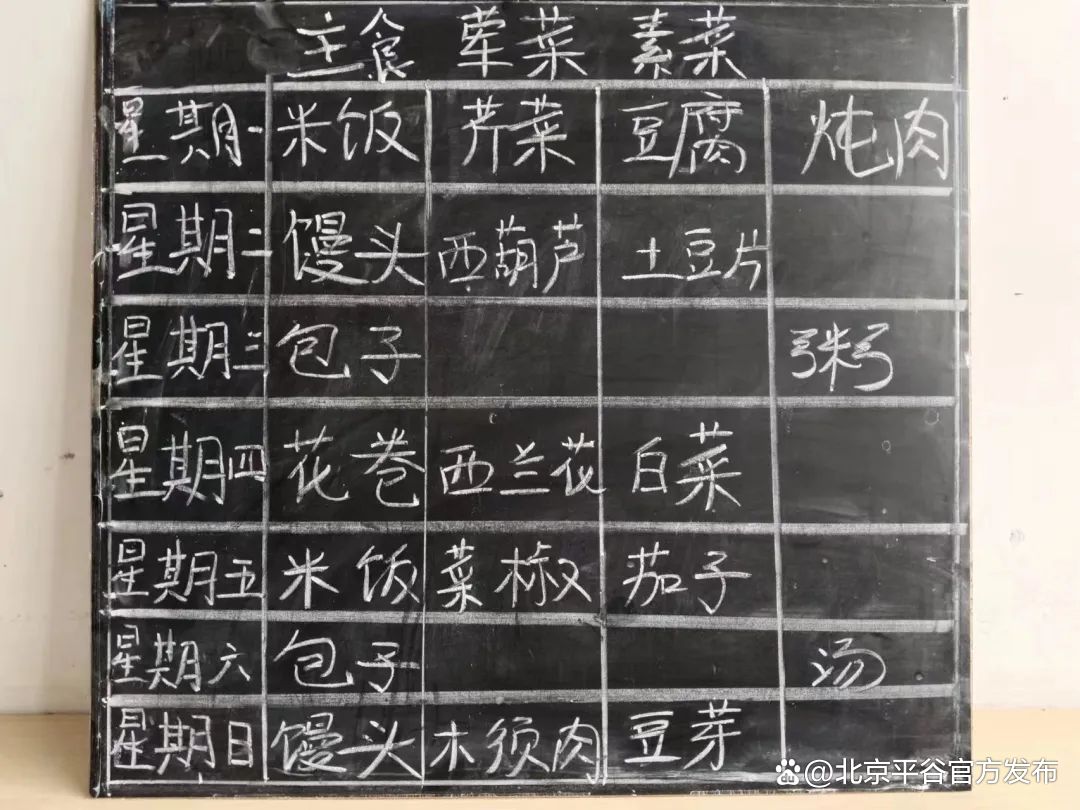 主食 荤菜 素菜
星期一 米饭 芹菜 豆腐 炖肉
星期二 馒头 西葫芦 土豆片
星期三 包子 粥
星期四 花卷 西兰花 白菜
星期五 米饭 菜椒 茄子
星期六 包子 汤
星期日 馒头 木须肉 豆芽
@北京平谷官方发布